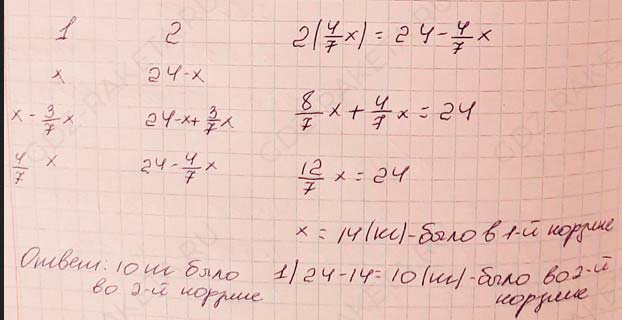 1 2 2(4/7 x) = 24 - 4/7 x
x 24-x
x - 3/7 x 24-x+ 3/7 x 8/7 x + 4/7 x = 24
4/7 x 24 - 4/7 x 12/7 x = 24
x = 14 (кг) - было в 1-й корзине
Ответ: 10 кг было 1) 24-14=10 (кг) - было во 2-й
во 2-й корзине корзине